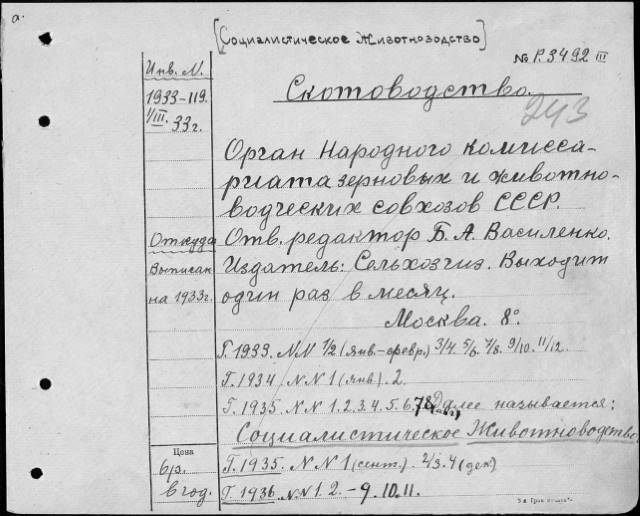 а.
[Социалистическое Животноводство]
№ Р.3492 III
Инв. N.
1933-119.
1/III. 33г.
Скотоводство.
243
Орган Народного комисса-
риата зерновых и животно-
водческих совхозов СССР.
Откуда
Отв. редактор Б. А. Василенко.
Выписан
Издатель: Сельхозгиз. Выходит
на 1933г.
один раз в месяц.
Москва. 8°.
Г. 1933. N.N 1/2 (янв.-февр.) 3/4. 5/6. 7/8. 9/10. 11/12.
Г. 1934. N.N 1 (янв.) 2.
Г. 1935. N.N 1. 2. 3. 4. 5. 6. 7. 8 Далее называется:
Социалистическое Животноводство
Цена
6р.
в год.
Г. 1935. N.N 1 (сент.). 2/3. 4 (дек)
Г. 1936. N.N 1. 2. - 9. 10. 11.